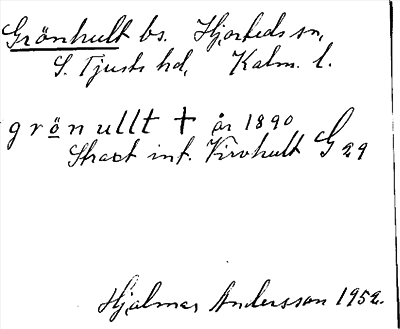 Grönhult bs. Hjorteds sn,
S. Tjusts hd, Kalm. l.
grön ullt † år 1890
Strax int. Virvhult G 29
Hjalmar Andersson 1952.